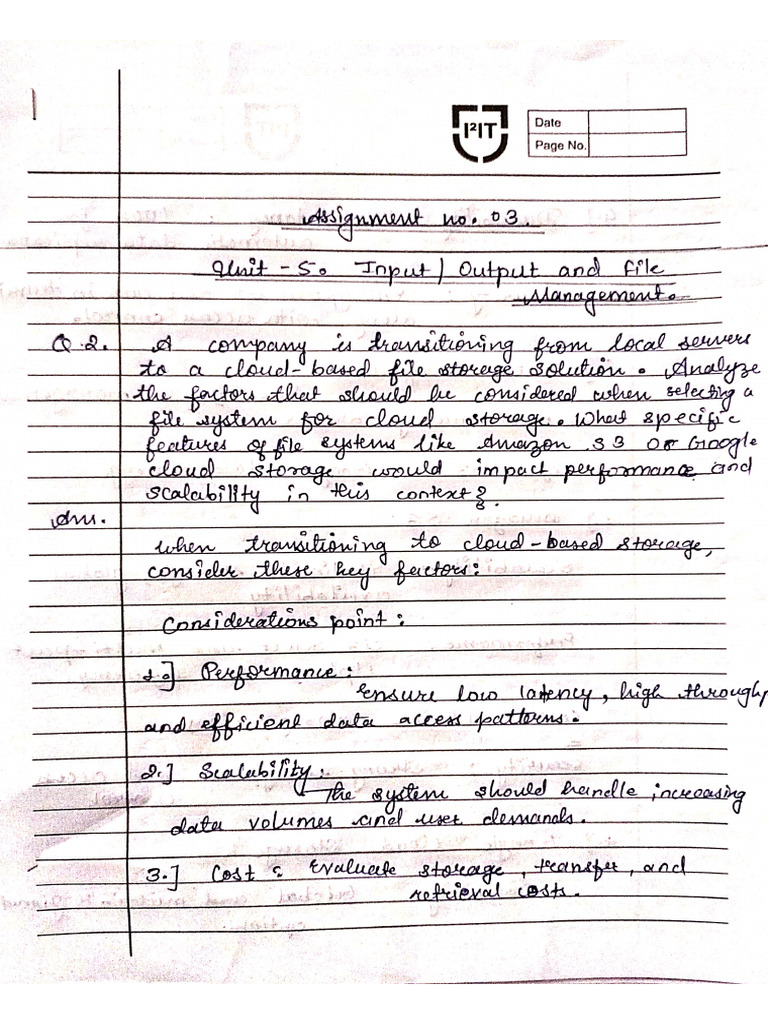 I²IT
Date
Page No.
Assignment no. 03.
Unit - 5. Input / Output and file
Management.
Q.2. A company is transitioning from local servers
to a cloud-based file storage solution. Analyze
the factors that should be considered when selecting a
file system for cloud storage. What specific
features of file systems like Amazon S3 or Google
cloud storage would impact performance and
scalability in this context?
Ans.
When transitioning to cloud-based storage,
consider these key factors:
Considerations point:
1.] Performance:
Ensure low latency, high throughp
and efficient data access patterns.
2.] Scalability:
The system should handle increasing
data volumes and user demands.
3.] Cost: Evaluate storage, transfer, and
retrieval costs.